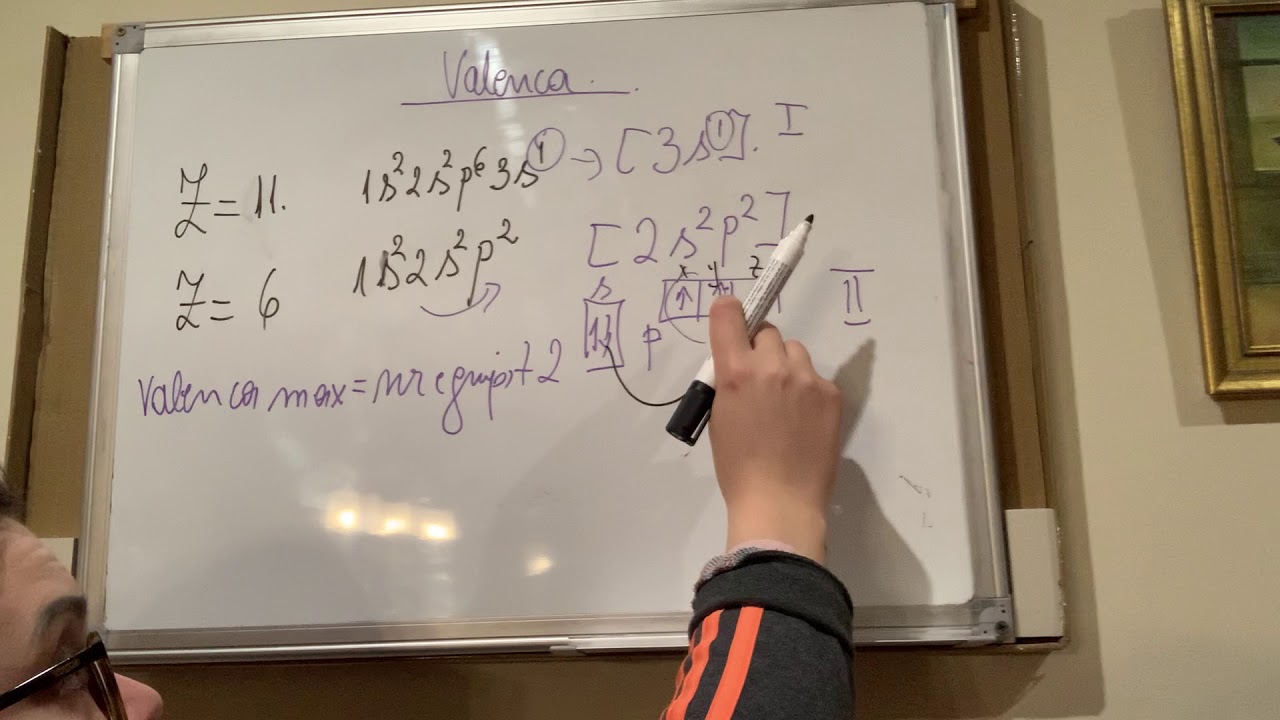 Valenca.
Z = 11. 1s²2s²p⁶3s¹ → [3s¹]. I
Z = 6 1s²2s²p² [2s²p²]
x y z
s
1↓ p ↑ II
Valenca max = nr e grupit + 2